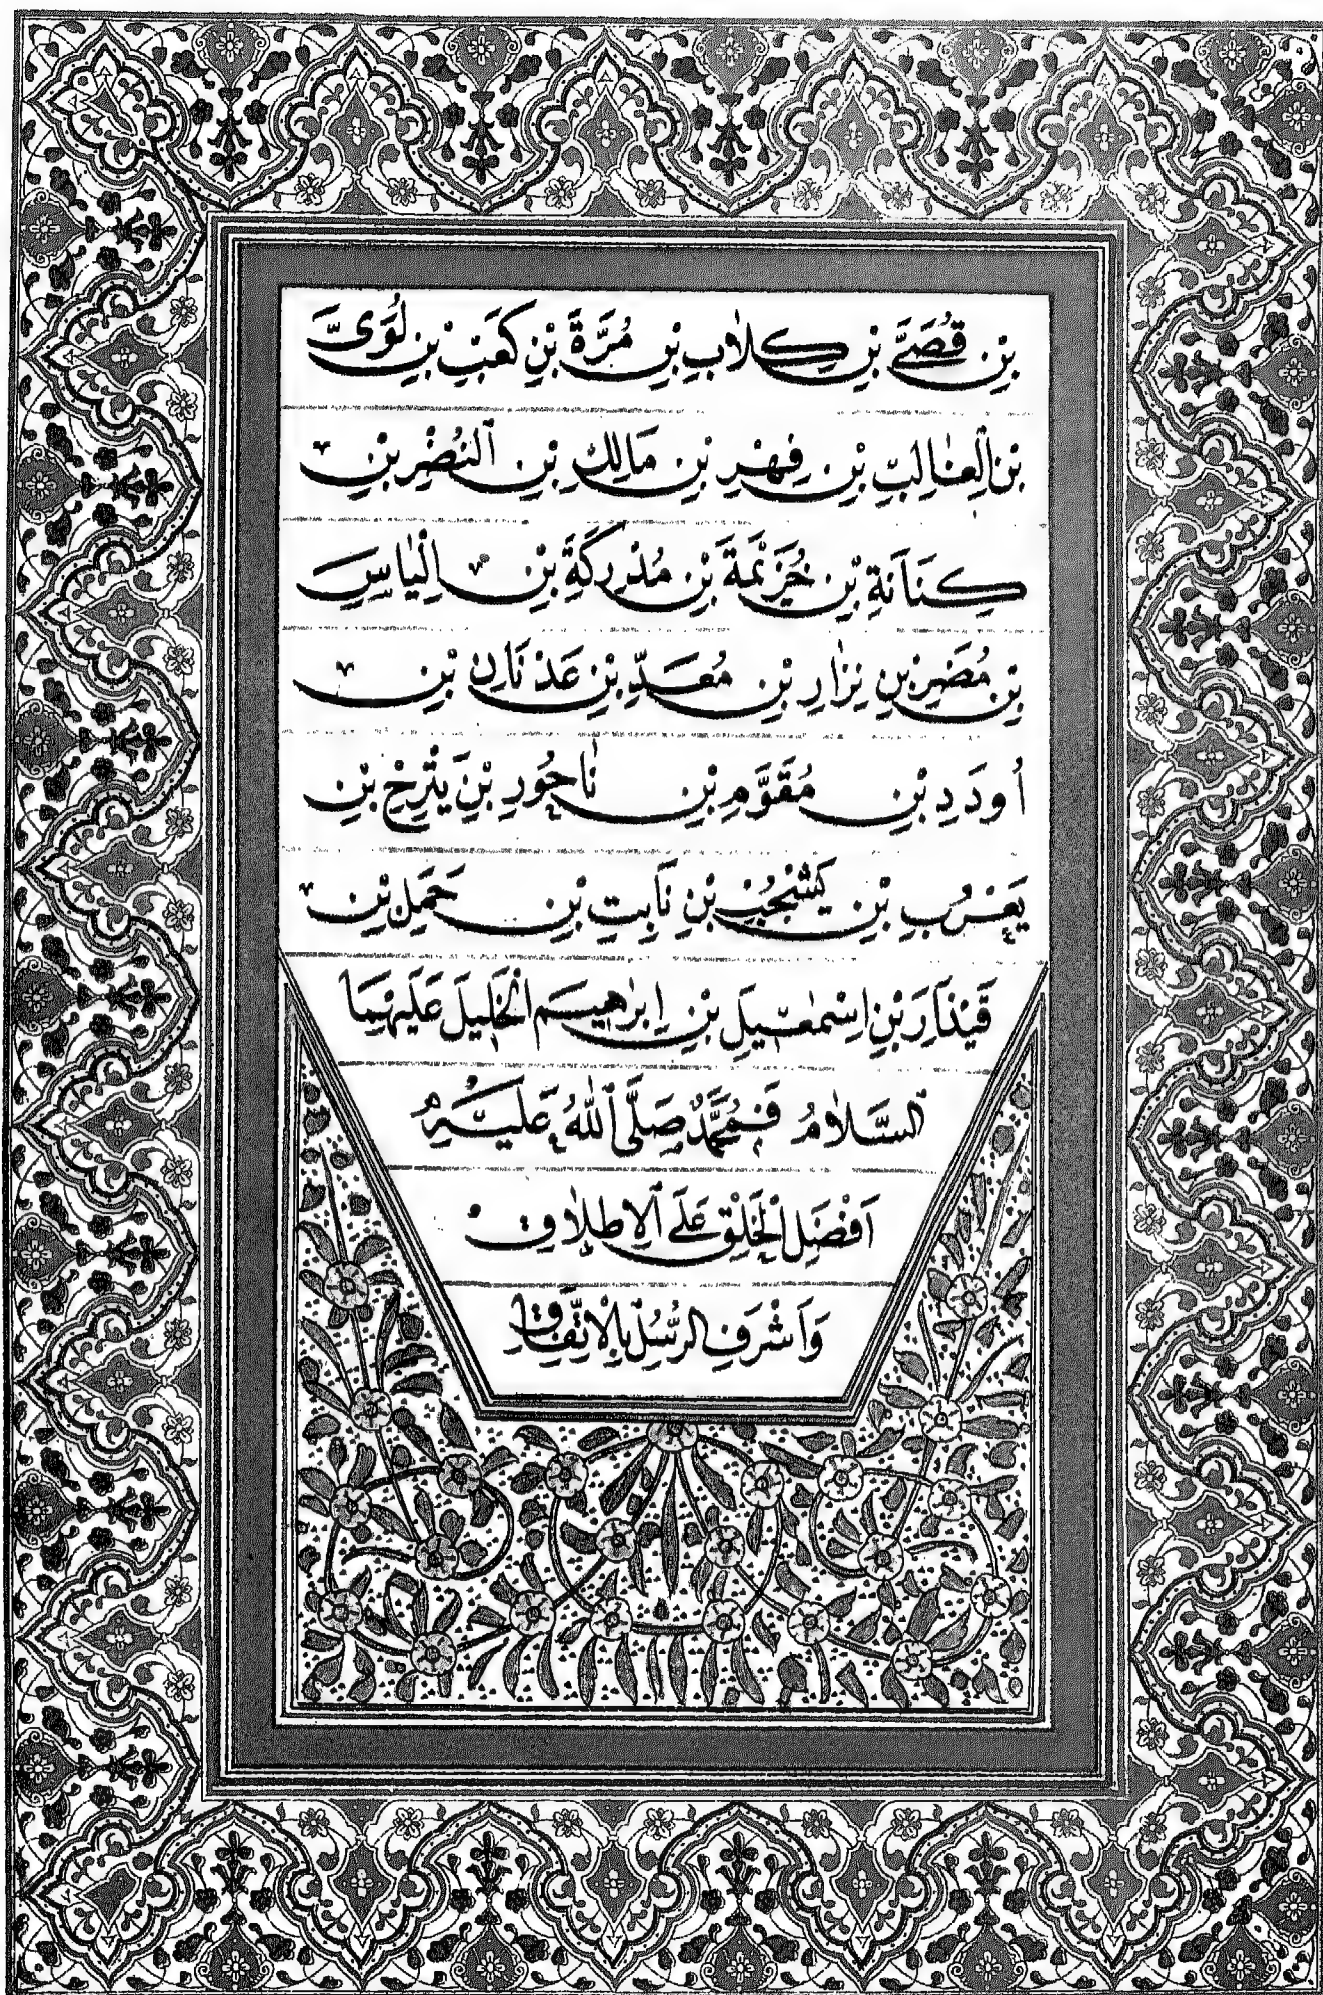 بْنِ قُصَىَّ بْنِ كِلَابِ بْنِ مُرَّةَ بْنِ كَعَبْ بْنِ لُوَىَّ
بْنِ الْغَالِبِ بْنِ فِهْرِ بْنِ مَالِكِ بْنِ النُضْرِ بْنِ
كِنَانَةِ بْنِ خُزَيْمَةَ بْنِ مُدْرِكَةِ بْنِ اِلْيَاسِ
بْنِ مُضَرِ بْنِ نِزَارِ بْنِ مُعَدِّ بْنِ عَدْنَانِ بْنِ
اُودَدِ بْنِ مُقَوَّمِ بْنِ نَاحُورِ بْنِ يَتْرِحْ بْنِ
يَعْرُبِ بْنِ يَشْجُبْ بْنِ نَابِتِ بْنِ حَمَلِ بْنِ
قَيْذَارَ بْنِ اِسْمٰعِيلَ بْنِ اِبْرٰهِيمَ الْخَلِيلَ عَلَيْهِمَا
السَّلَامُ فَمُحَمَّدٌ صَلَّى اللهُ عَلَيْهِ
اَفْضَلِ الْخَلْقِ عَلَى الْاِطْلَاقِ
وَاَشْرَفِ الرُّسُلِ بِالْاِتِّفَاقِ